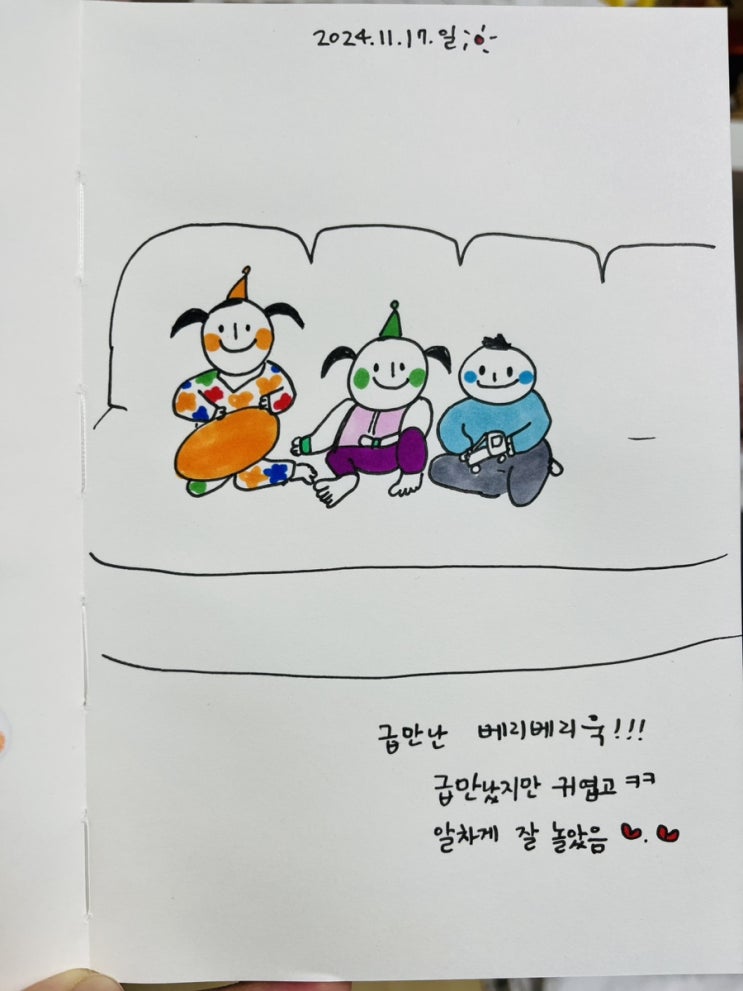 2024.11.17.일
급만난 베리베리욱!!!
급만났지만 귀엽고ㅋㅋ
알차게 잘 놀았음